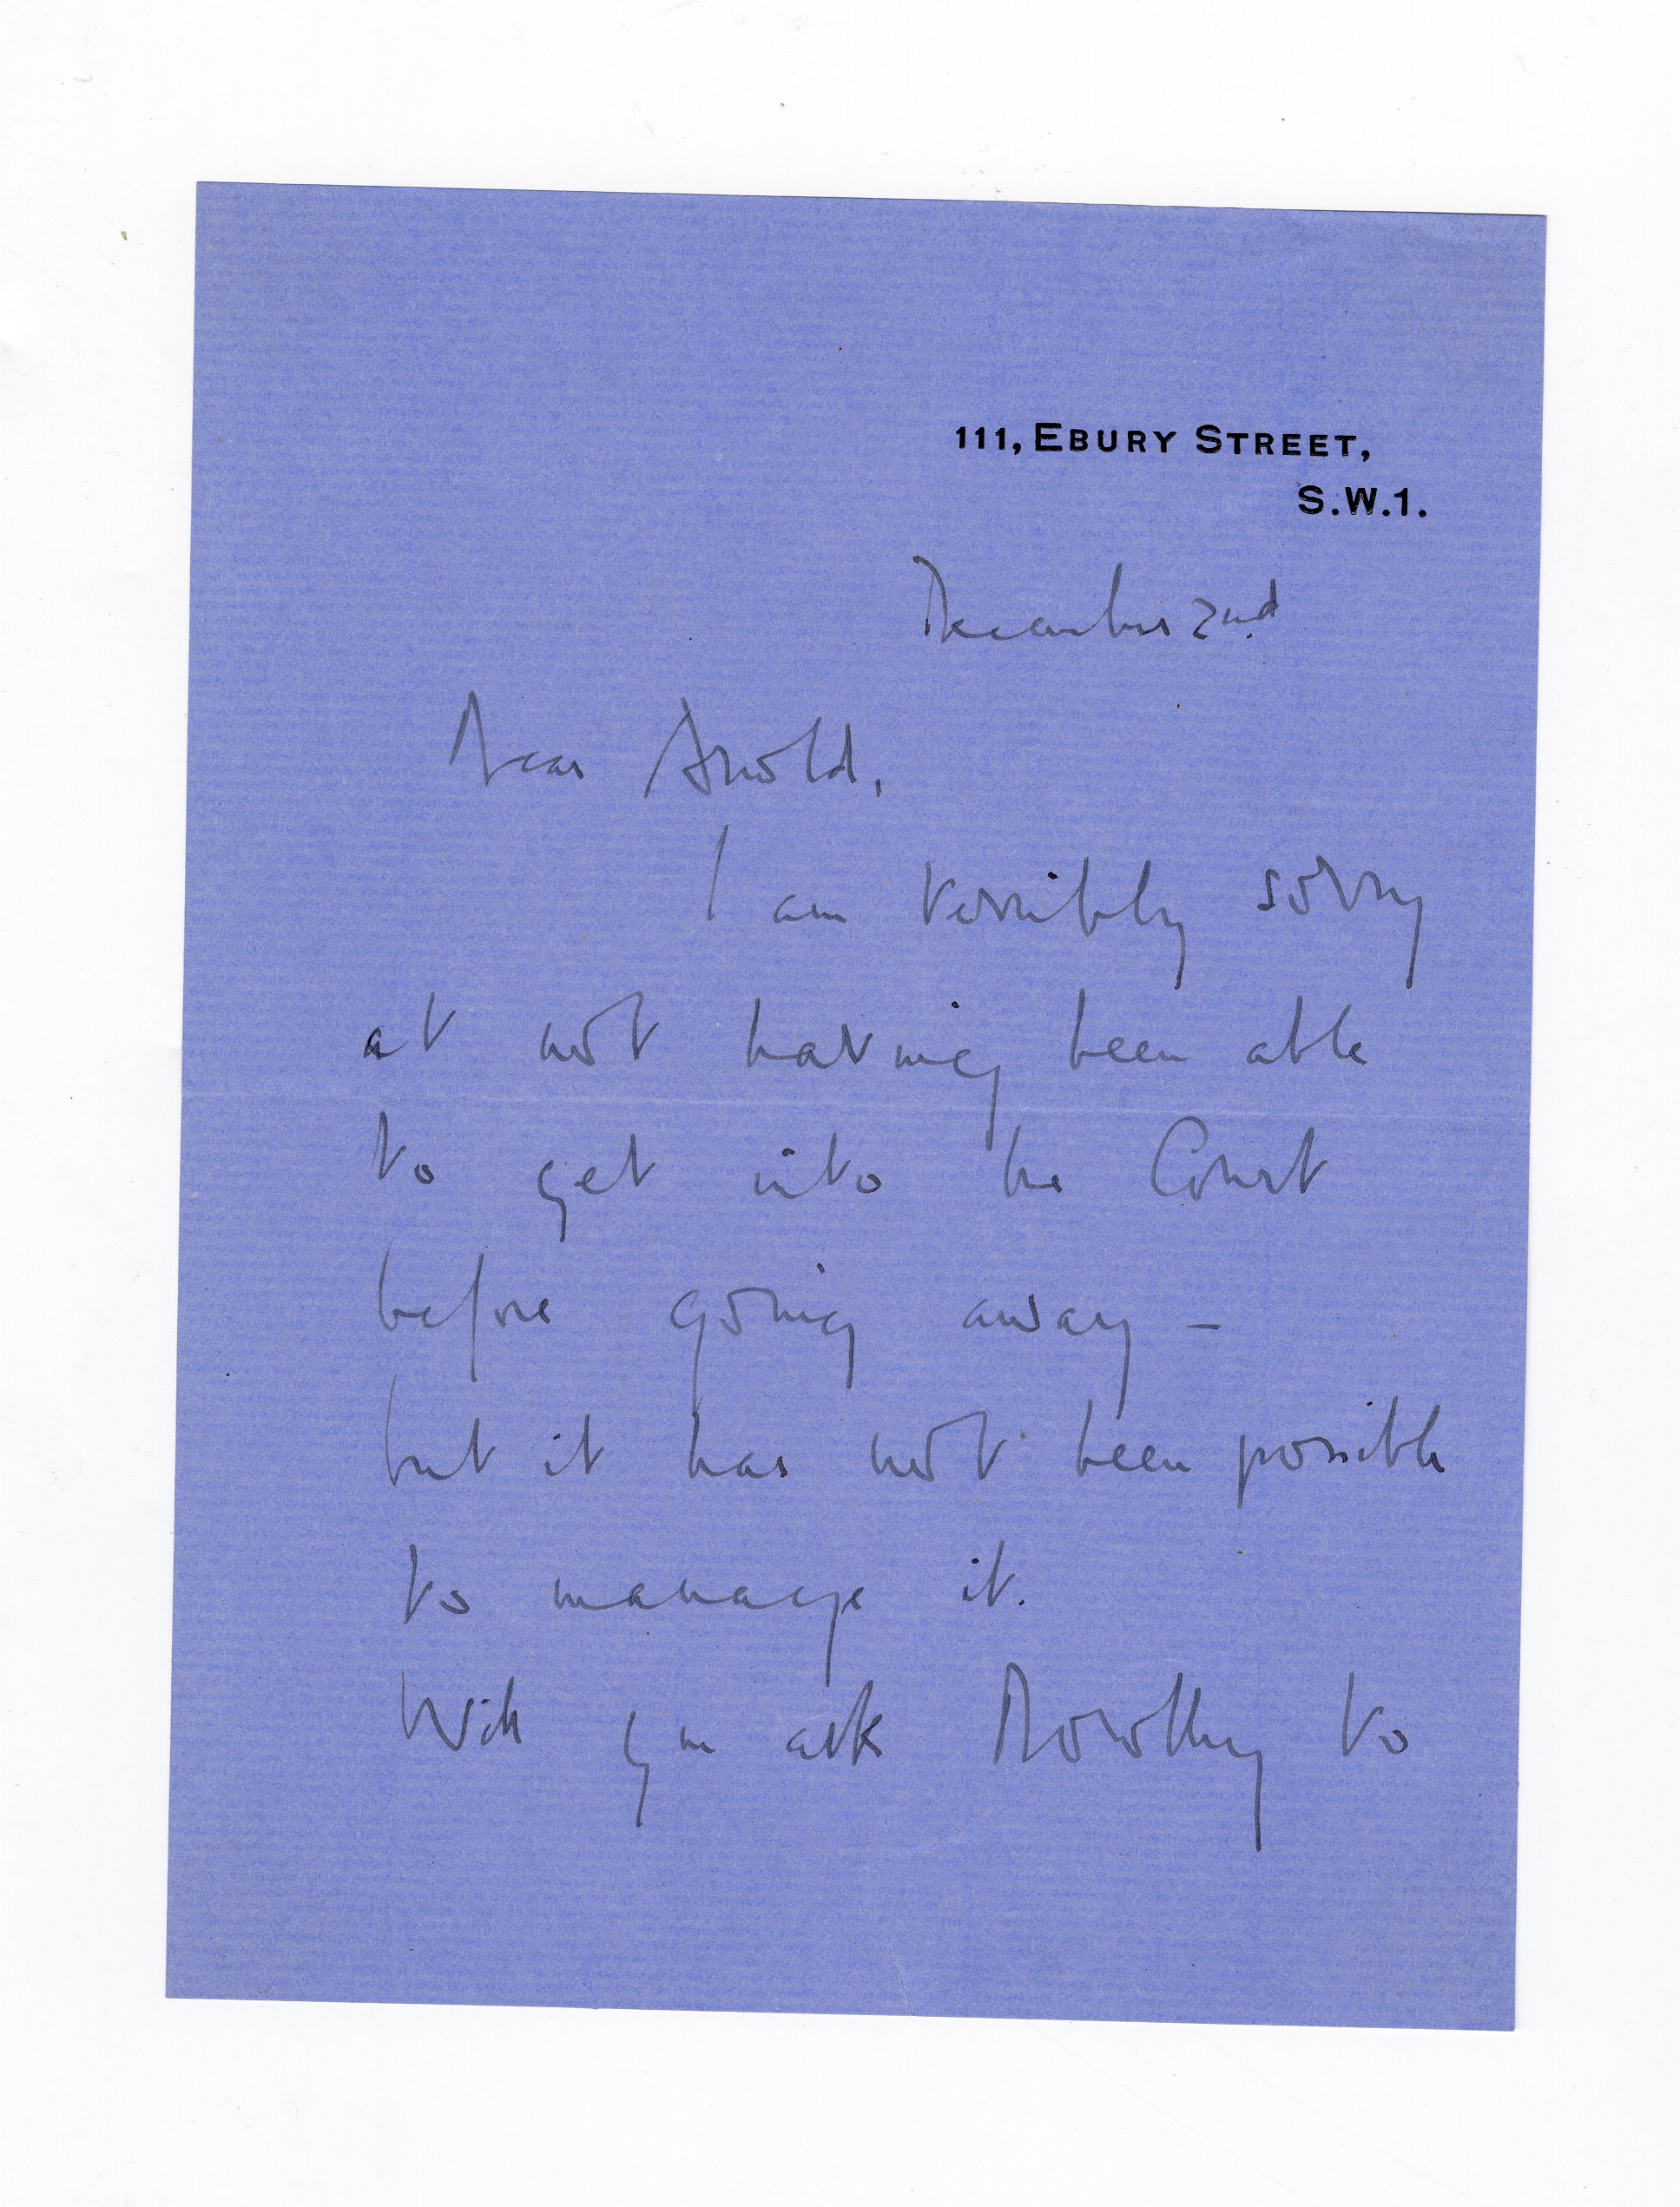 111, EBURY STREET,
S.W.1.
December 2nd
Dear Arnold,
I am terribly sorry
at not having been able
to get into the Court
before going away –
but it has not been possible
to manage it.
Will you ask Dorothy to